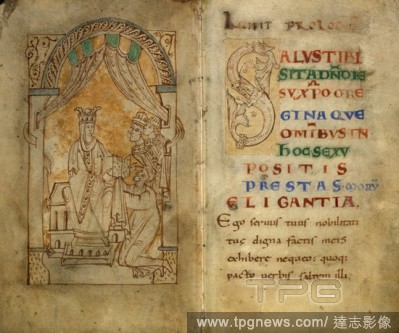 INCIPIT PROLOG
SALUS TIBI
SIT A DNO IE
SU XPO O RE
GINA QUE
OMIBUS IN
HOC SEXU
POSITIS
PRESTAS MORU
ELIGANTIA.
Ego seruus tuus nobilitati
tuę digna factis meis
exhibere nequeo: quoq;
pacto uerbis saltem illi
TPG
www.tpgnews.com/ 達志影像